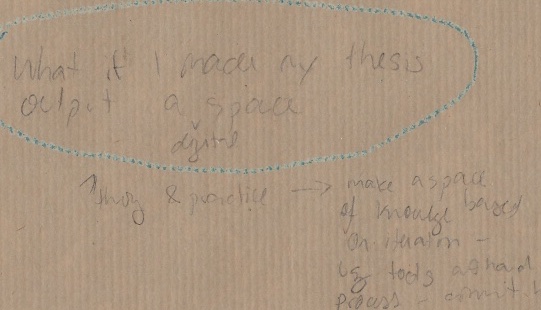 What if I made my thesis
output a space
digital
↑ thory & practice → make a space
of knowlege based
on iteration –
tools at hand
process – commit